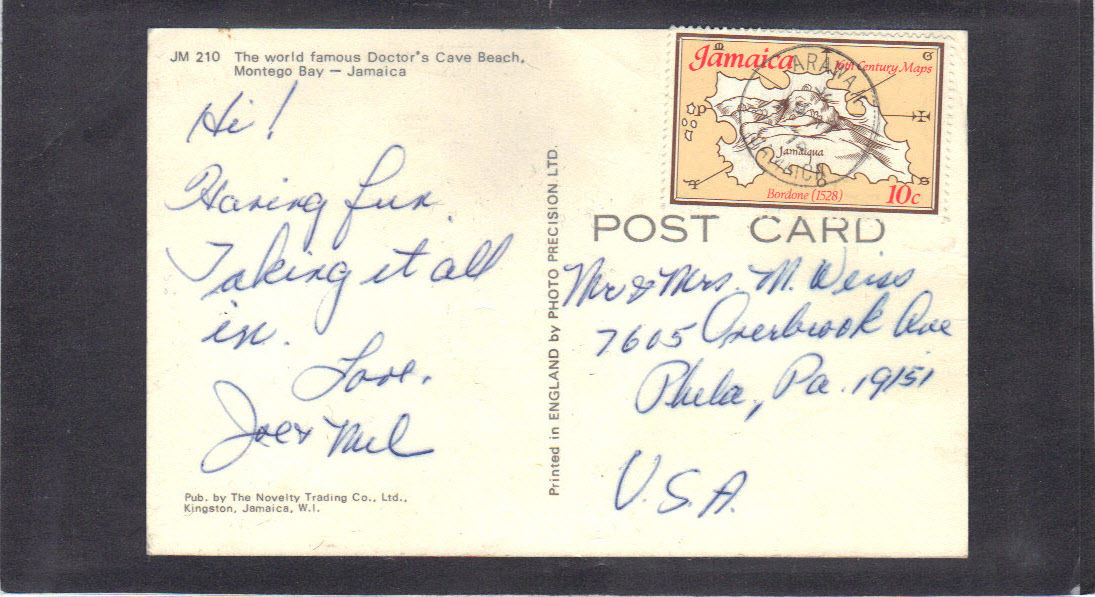 JM 210 The world famous Doctor's Cave Beach,
Montego Bay – Jamaica
Hi!
Having fun.
Taking it all
in.
Love,
Joe & Mel
Pub. by The Novelty Trading Co., Ltd.,
Kingston, Jamaica, W.I.
Printed in ENGLAND by PHOTO PRECISION LTD.
Jamaica
16th Century Maps
Jamaiqua
Bordone (1528)
10c
JAMAICA
POST CARD
Mr & Mrs. M. Weiss
7605 Overbrook Ave
Phila, Pa. 19151
U.S.A.